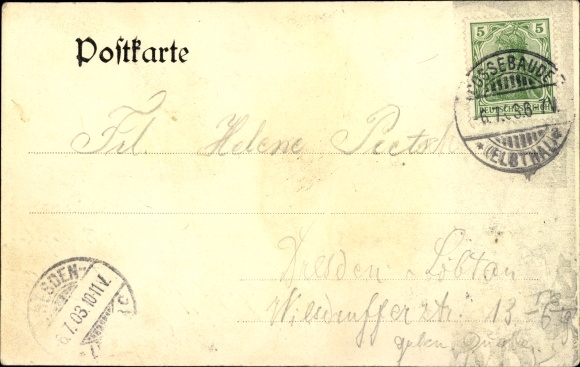 Postkarte
5 5
COSSEBAUDE
DEUTSCHES REICH
6.7.03.6-7N.
* (ELBTHAL) *
Frl Helene Pietsch
DRESDEN
6.7.03.10-11V.
Dresden-Löbtau
Wilsdrufferstr. 13